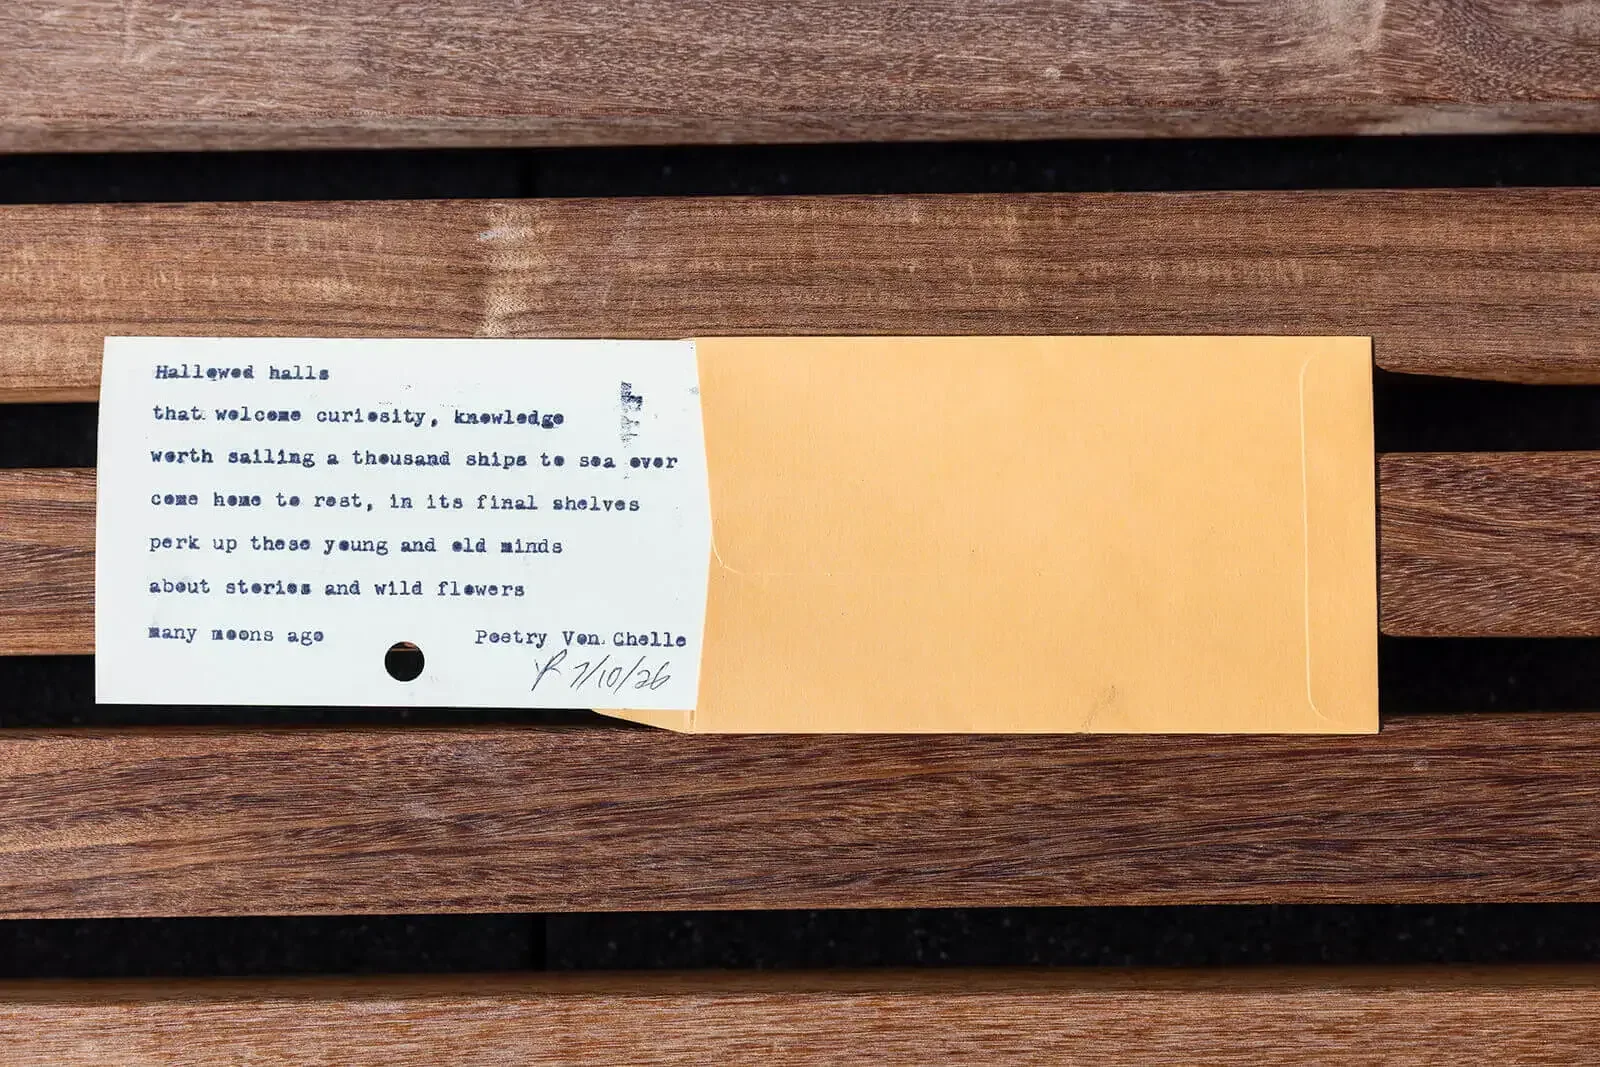 Hallowed halls
that welcome curiosity, knowledge
worth sailing a thousand ships to sea over
come home to rest, in its final shelves
perk up these young and old minds
about stories and wild flowers
many moons ago
Poetry Von Chelle
7/10/26